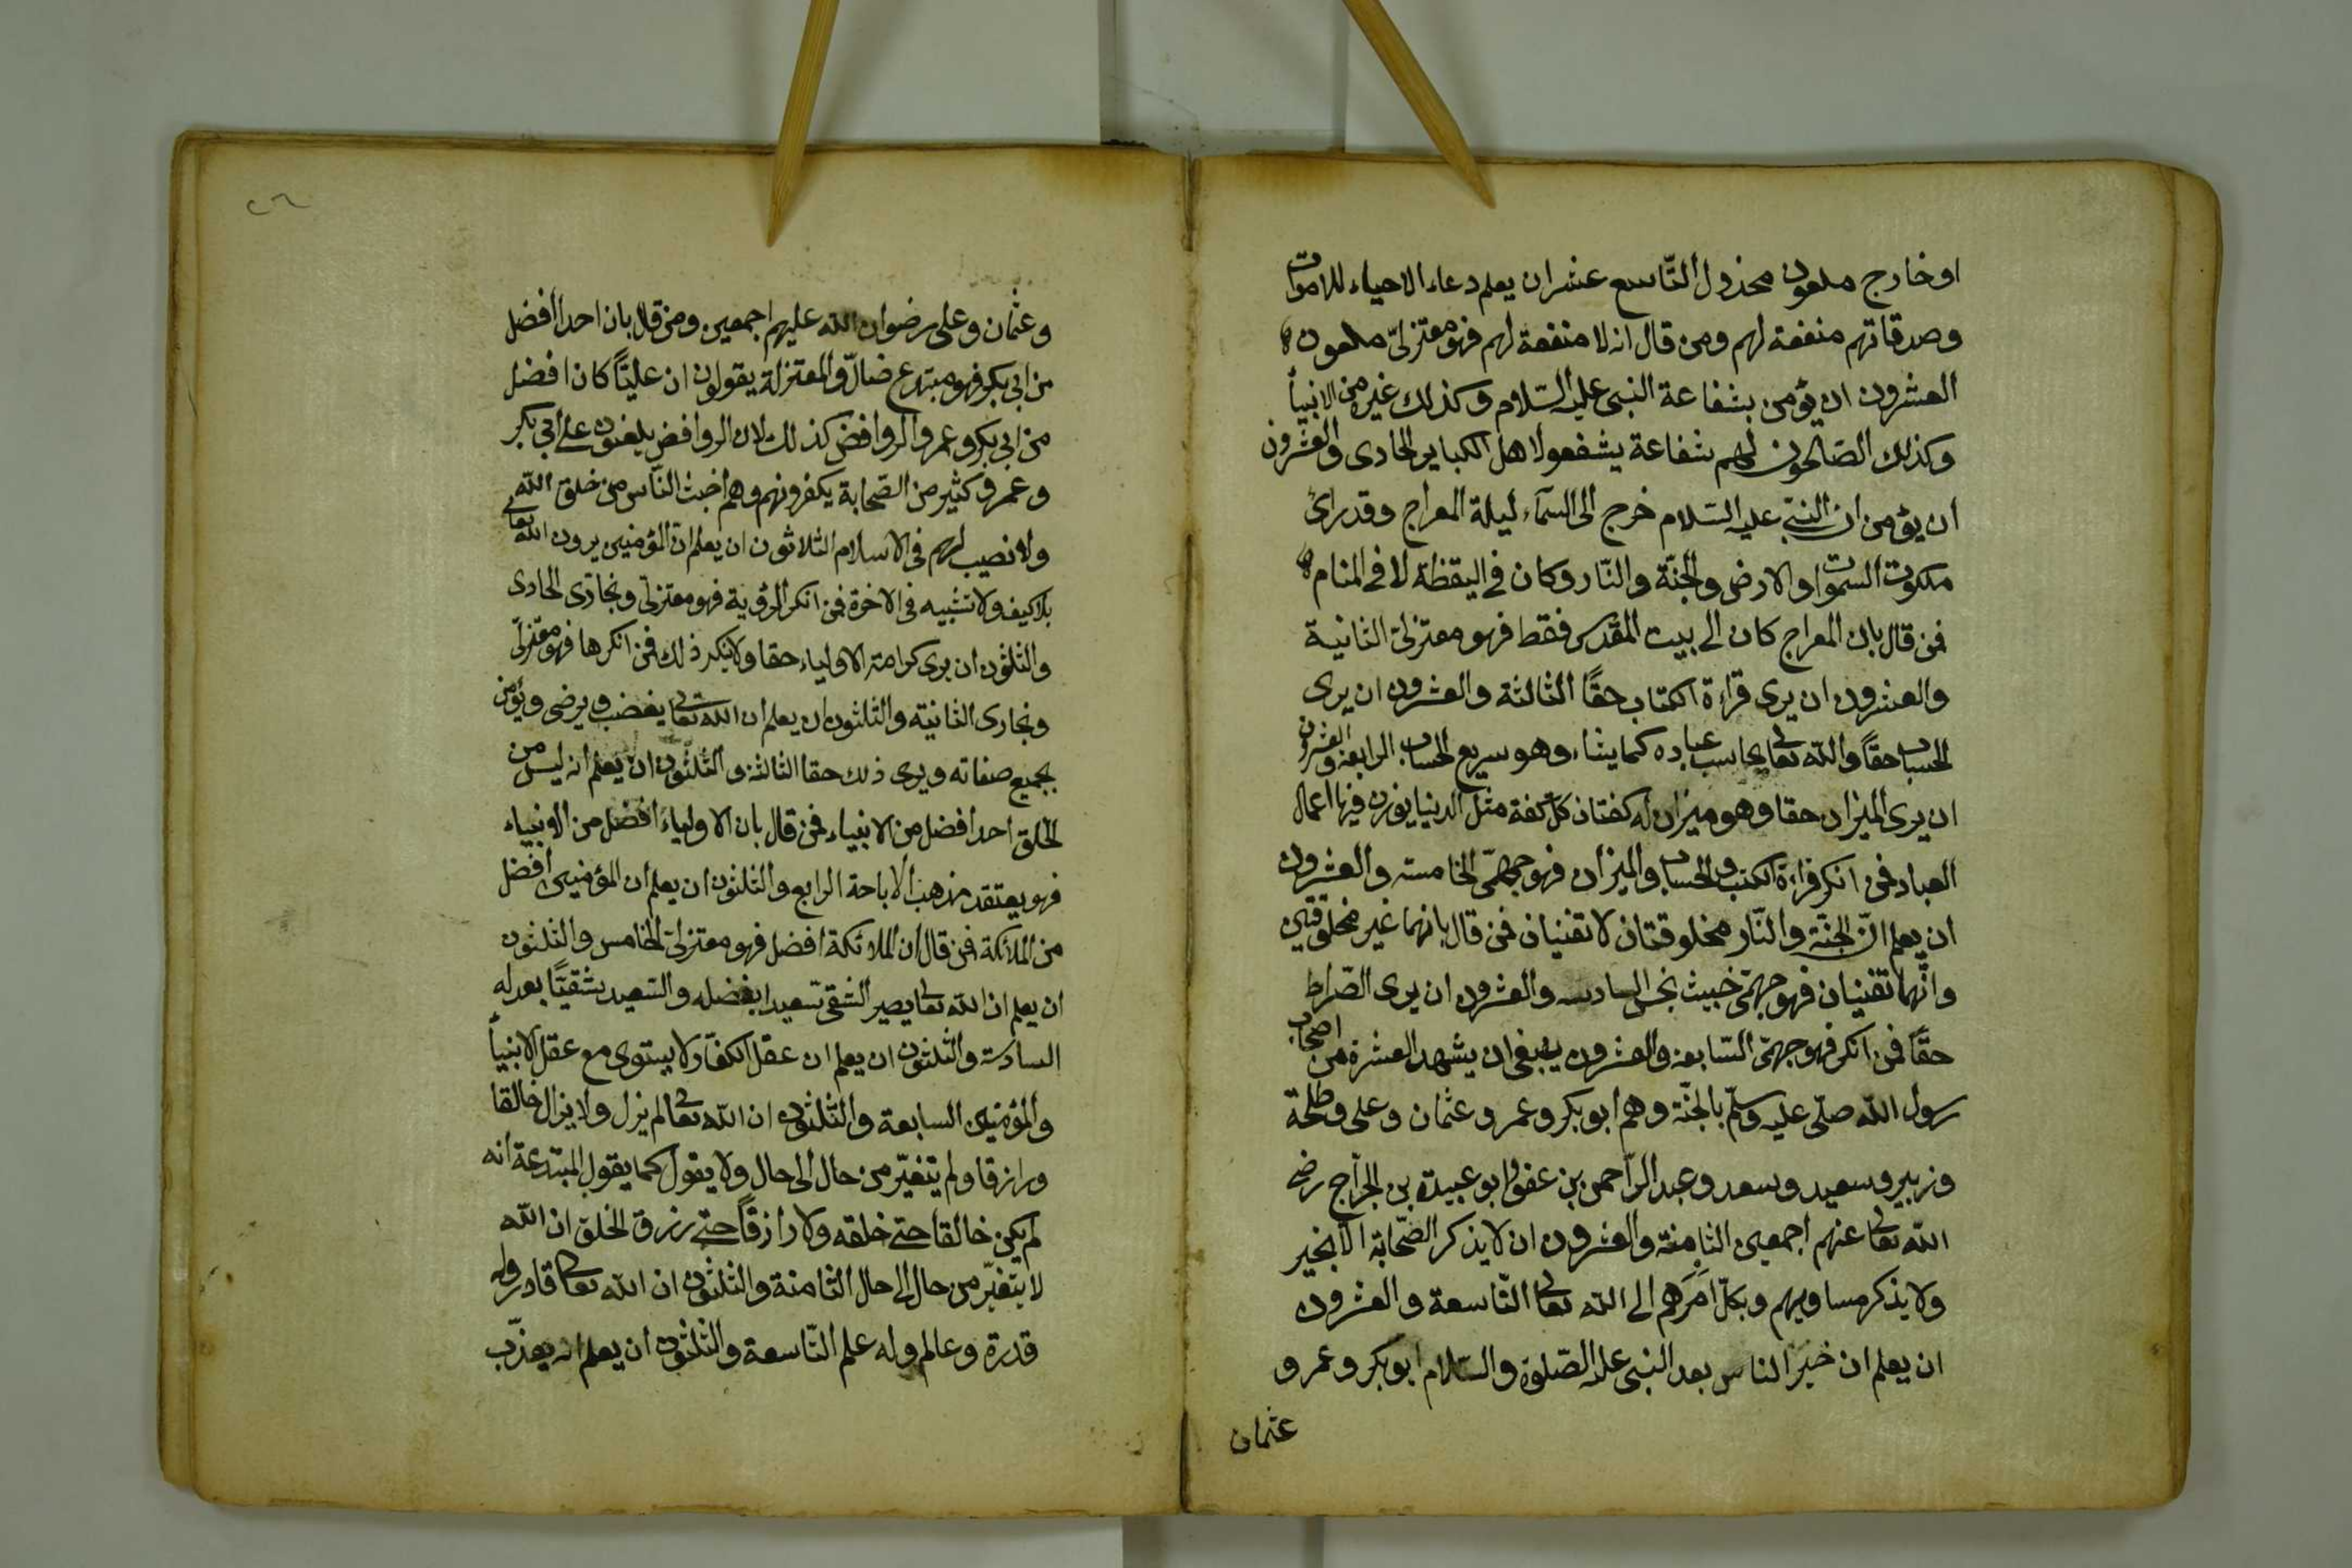 او خارج ملعون مخذول التّاسع عشر ان يعلم دعاء الاحياء للاموات
وصدقاتهم منفعة لهم ومن قال انه لا منفعة لهم فهو معتزلىّ ملعون
العشرون ان يؤمن بشفاعة النبى عليه السّلام وكذلك غيره من الانبيأ
وكذلك الصّالحون لهم شفاعة يشفعو لاهل الكباير الحادى والعشرون
ان يؤمن ان النبىّ عليه السّلام خرج الى السمآء ليلة المعراج وقد رأى
ملكوت السموات والارض والجنّة والنّار وكان فى اليقظة لا فى المنام
فمن قال بان المعراج كان الى بيت المقدس فقط فهو معتزلىّ الثانية
والعشرون ان يرى قراءة الكتاب حقًا الثالثة والعشرون ان يرى
الحساب حقًا والله تعالى يحاسب عباده كما يشاء وهو سريع الحساب الرابعة والعشرون
ان يرى الميزان حقا وهو ميزان له كفتان كلّ كفة مثل الدنيا يوزن فيها اعمال
العباد فمن انكر قراءة الكتب والحساب والميزان فهو جهمّى الخامسة والعشرون
ان يعلم انّ الجنّة والنّار مخلوقتان لا تفنيان فمن قال بانهما غير مخلوقتين
وانّهما تفنيان فهو جهمّى خبيث نجس السادسة والعشرون ان يرى الصّراط
حقًا فمن انكر فهو جهمّى السّابعة والعشرون ينبغى ان يشهد العشرة من اصحاب
رسول الله صلّى عليه وسلّم بالجنّة وهم ابو بكر وعمر وعثمان وعلى وطلحة
وزبير وسعيد وسعد وعبد الرّحمن بن عفو وابو عبيدة بن الجرّاح رضى
الله تعالى عنهم اجمعين الثامنة والعشرون ان لا يذكر الصّحابة الّا بخير
ولا يذكر مساويهم وبكلّ امرهم الى الله تعالى التّاسعة والعشرون
ان يعلم ان خير الناس بعد النبى عليه الصّلوة والسّلام ابو بكر وعمر و
عثمان
٢٦
وعثمان وعلى رضوان الله عليهم اجمعين ومن قال بان احدا افضل
من ابى بكر فهو مبتدع ضالّ والمعتزلة يقولون ان عليًّا كان افضل
من ابى بكر وعمر والروافض كذلك لان الروافض يلعنون على ابى بكر
وعمر وكثير من الصّحابة يكفرونهم وهم اخبث النّاس من خلق الله
ولا نصيب لهم فى الاسلام الثلاثون ان يعلم انّ المؤمنين يرون الله تعالى
بلا كيف ولا تشبيه فى الاخرة فمن انكر الرؤية فهو معتزلىّ ونجارّى الحادى
والثلثون ان يرى كرامة الاولياء حقا ولا ينكر ذلك فمن انكرها فهو معتزلىّ
ونجارى الثانية والثلثون ان يعلم ان الله تعالى يغضب ويرضى ويؤمن
بجميع صفاته ويرى ذلك حقا الثالثة والثلثون ان يعلم انه ليس من
الخلق احد افضل من الانبياء فمن قال بان الاولياء افضل من الانبياء
فهو يعتقد مذهب الاباحة الرابع والثلثون ان يعلم ان المؤمنين افضل
من الملائكة فمن قال ان الملائكة افضل فهو معتزلىّ الخامس والثلثون
ان يعلم ان الله تعالى يصير الشقى سعيدا بفضله والسّعيد شقيّا بعدله
السادسة والثلثون ان يعلم ان عقل الكفّار لا يستوى مع عقل الانبيأ
والمؤمنين السابعة والثّلثون ان الله تعالى لم يزل ولا يزال خالقا
ورازقا ولم يتغيّر من حال الى حال ولا يقول كما يقول المبتدعة انه
لم يكن خالقا حتى خلقه ولا رازقًا حتى رزق الخلق ان الله
لا يتغيّر من حال الى حال الثامنة والثلثون ان الله تعالى قادر وله
قدرة وعالم وله علم التّاسعة والثلثون ان يعلم انه يعذّب